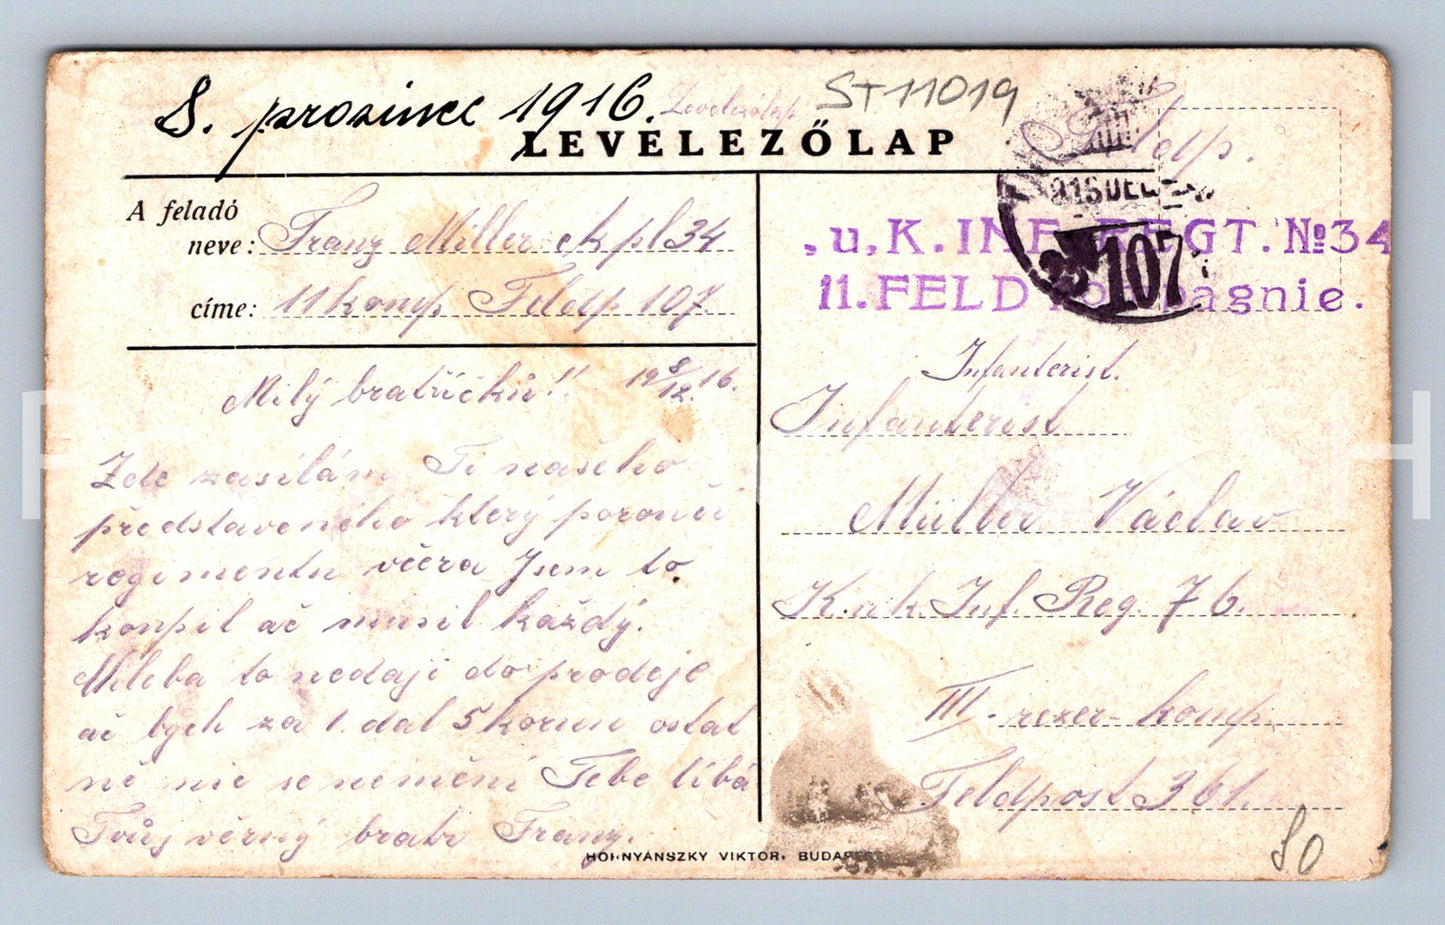 8. prosince 1916.
Levelezőlap
ST11019
LEVELEZŐLAP
Feldp.
A feladó
neve: Franz Miller ekpl 34
címe: 11 komp. Feldp 107.
916 DEZ
107
.u.K.INF.REGT.№34
11.FELDkompagnie.
Milý bratříčku!! 19 8/12. 16.
Zde zasílám Ti našeho
představeného který poroučí
regimentu včera Jsem to
koupil ač musil každý.
Miloba to nedaji do prodeje
ač bych za 1. dal 5 korun ostat
ně nic se nemění Tebe líbá
Tvůj věrný bratr Franz.
Infanterist.
Infanterist
Müller Václav
K.u.k. Inf. Reg. 76.
III. rezer- komp.
Feldpost 361.
HORNYÁNSZKY VIKTOR, BUDAPEST
80